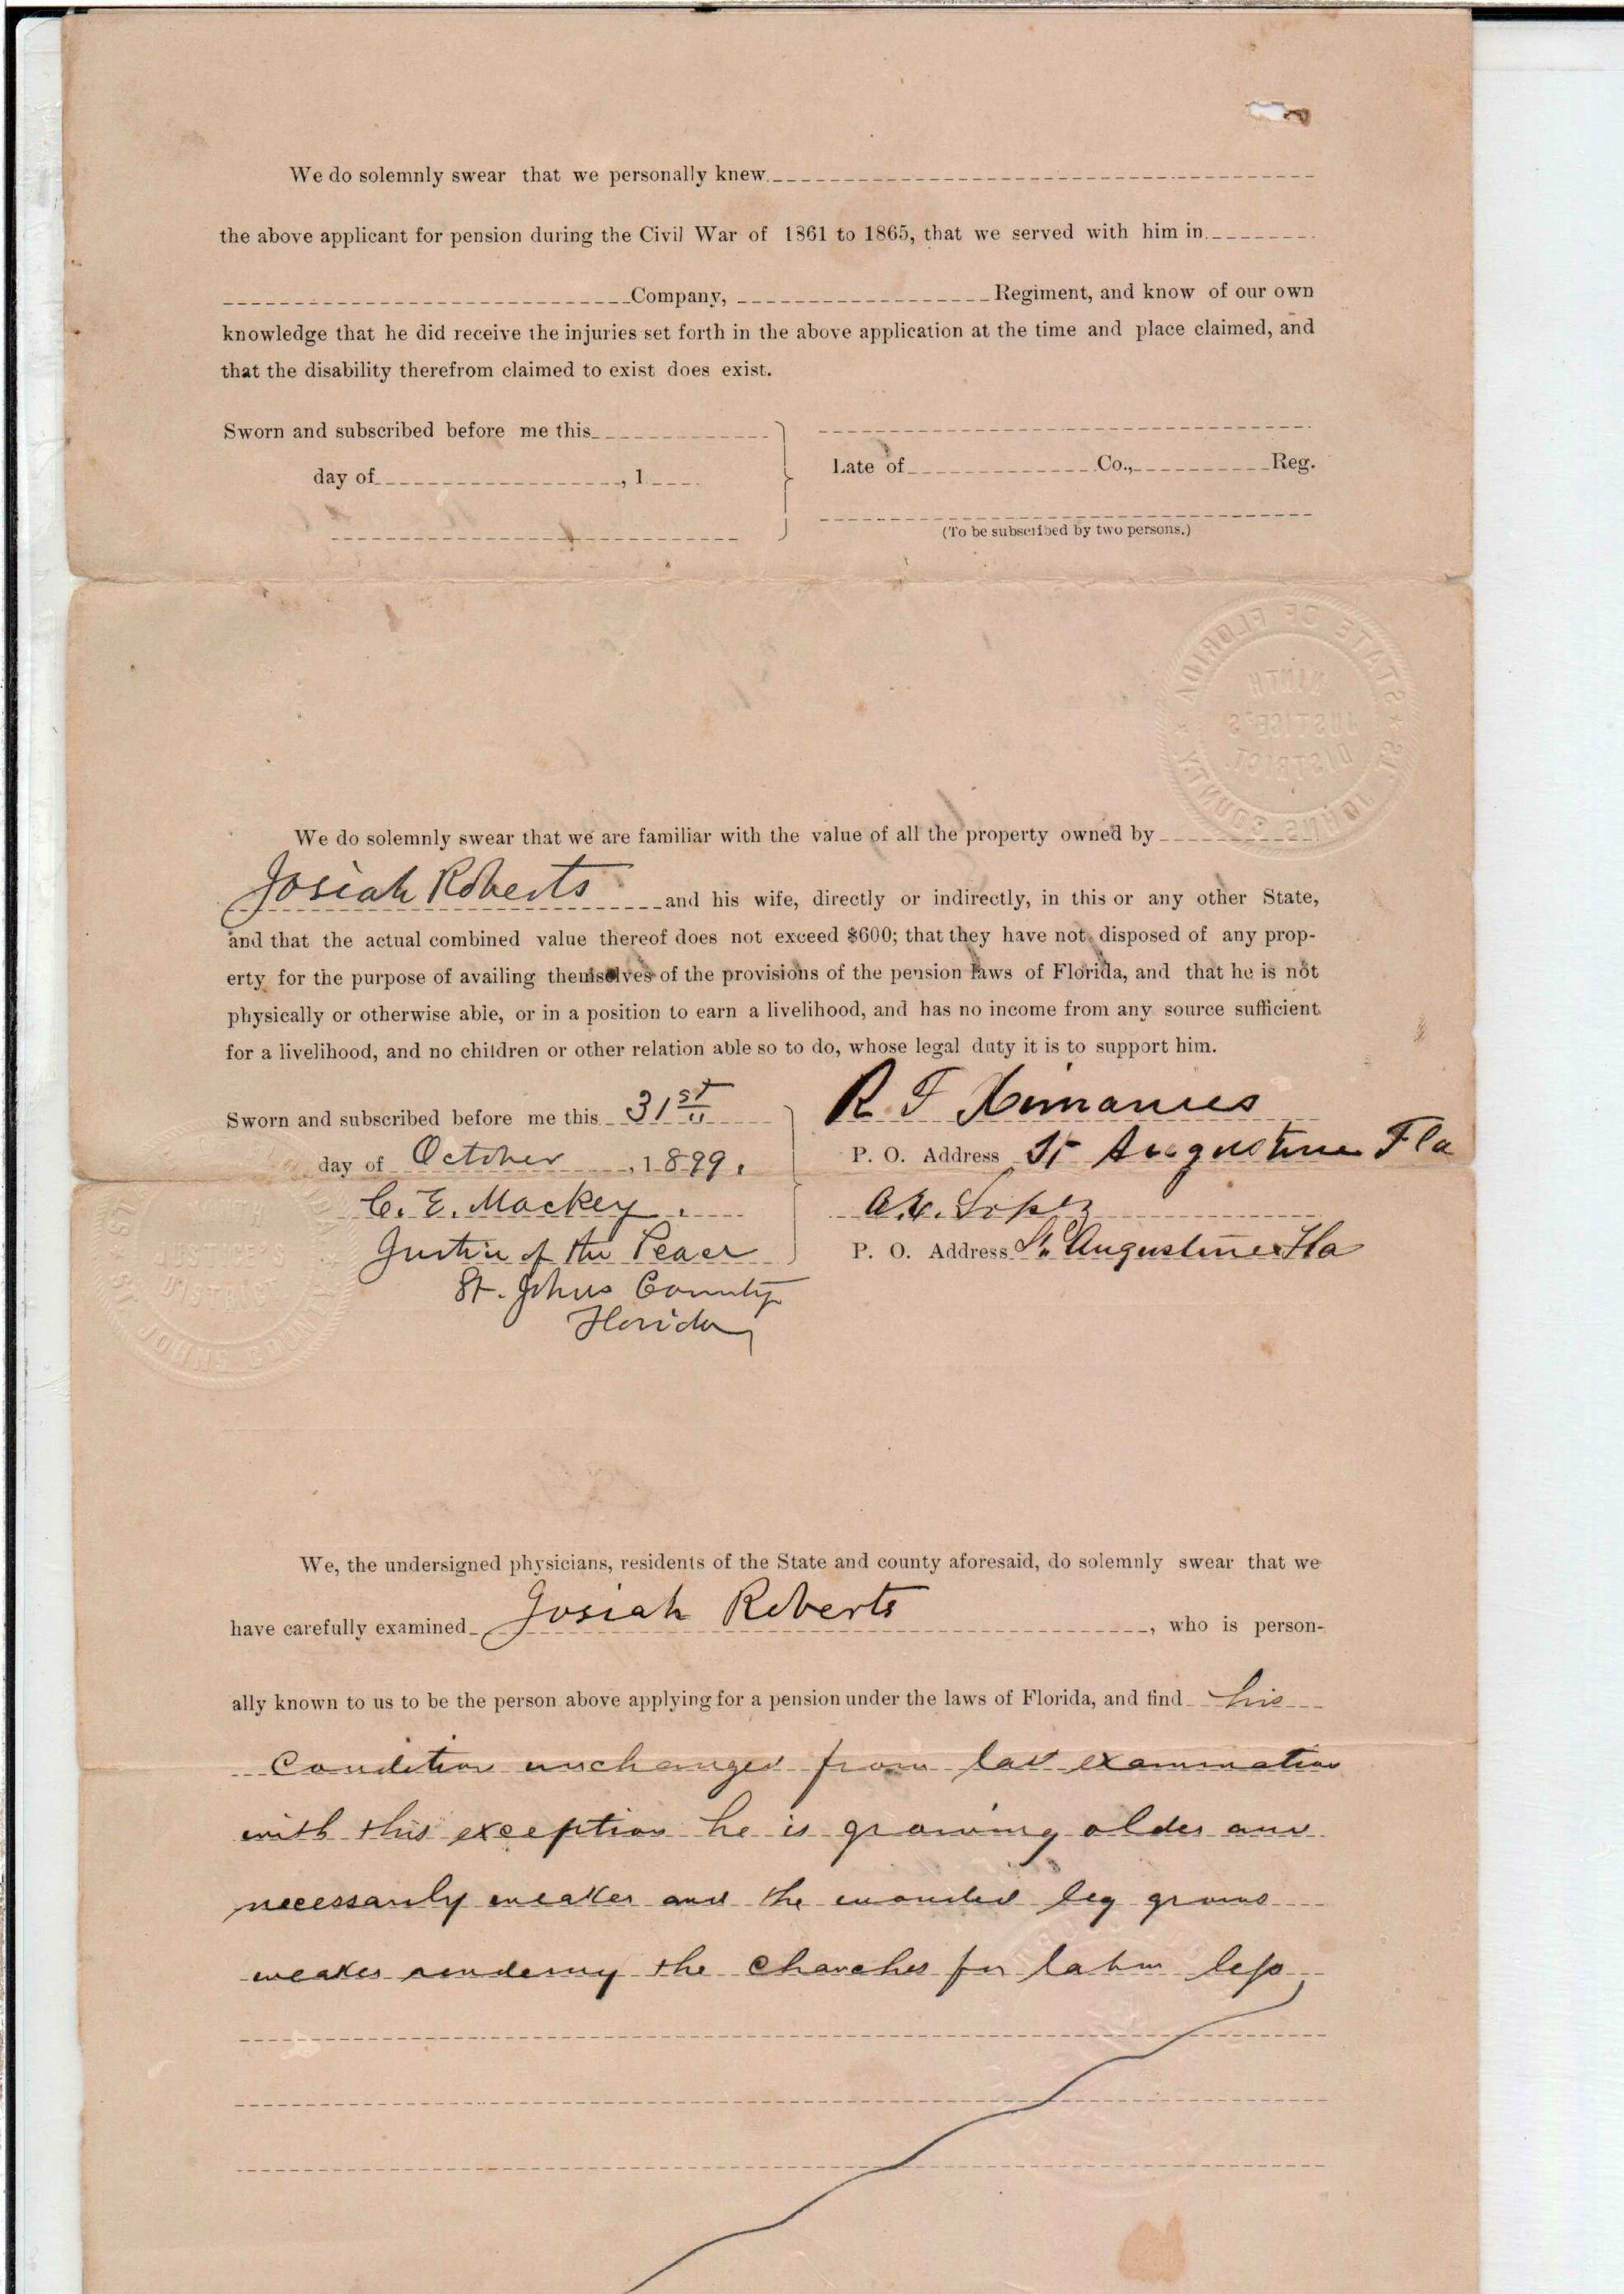 We do solemnly swear that we personally knew
the above applicant for pension during the Civil War of 1861 to 1865, that we served with him in
Company, Regiment, and know of our own
knowledge that he did receive the injuries set forth in the above application at the time and place claimed, and
that the disability therefrom claimed to exist does exist.
Sworn and subscribed before me this
day of , 1
Late of Co., Reg.
(To be subscribed by two persons.)
STATE OF FLORIDA * ST JOHNS COUNTY *
NINTH
JUSTICE'S
DISTRICT.
We do solemnly swear that we are familiar with the value of all the property owned by
Josiah Roberts and his wife, directly or indirectly, in this or any other State,
and that the actual combined value thereof does not exceed $600; that they have not disposed of any prop-
erty for the purpose of availing themselves of the provisions of the pension laws of Florida, and that he is not
physically or otherwise able, or in a position to earn a livelihood, and has no income from any source sufficient
for a livelihood, and no children or other relation able so to do, whose legal duty it is to support him.
Sworn and subscribed before me this 31st
day of October , 1899.
C. E. Mackey.
Justice of the Peace
St. Johns County
Florida
R. F. Ximanies
P. O. Address St Augustine Fla
Lopez
P. O. Address St. Augustine Fla
NINTH
JUSTICE'S
DISTRICT
ST. JOHNS COUNTY
We, the undersigned physicians, residents of the State and county aforesaid, do solemnly swear that we
have carefully examined Josiah Roberts , who is person-
ally known to us to be the person above applying for a pension under the laws of Florida, and find his
Condition unchanged from last examination
with this exception he is growing older and
necessarily weaker and the wounded leg grows
weaker rendering the chanches for labor less